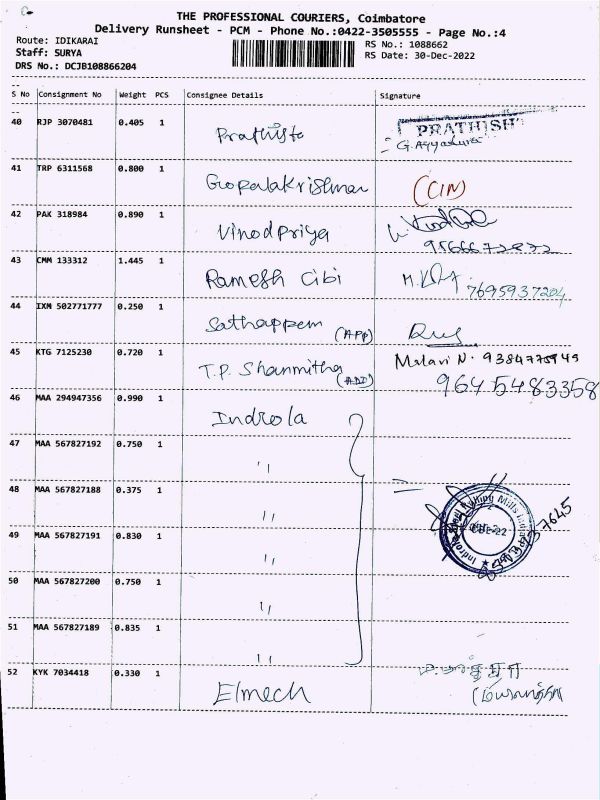 THE PROFESSIONAL COURIERS, Coimbatore
Delivery Runsheet - PCM - Phone No.:0422-3505555 - Page No.:4
Route: IDIKARAI RS No.: 1088662
Staff: SURYA RS Date: 30-Dec-2022
DRS No.: DCJB108866204
S No Consignment No Weight PCS Consignee Details Signature
40 RJP 3070481 0.405 1 Prathista PRATHISH
G. Ayyadurai
41 TRP 6311568 0.800 1 Gopalakrishnan (CIN)
42 PAK 318984 0.890 1 Vinodpriya
43 CMM 133312 1.445 1 Ramesh Cibi 7695937204
44 IXM 502771777 0.250 1 Sathappem (App)
45 KTG 7125230 0.720 1 T.P. Shanmitha (ADD) Malavi N. 9384775949
9645483358
46 MAA 294947356 0.990 1 Indrola
47 MAA 567827192 0.750 1 "
48 MAA 567827188 0.375 1 "
49 MAA 567827191 0.830 1 "
50 MAA 567827200 0.750 1 "
51 MAA 567827189 0.835 1 "
52 KYK 7034418 0.330 1 Elmech